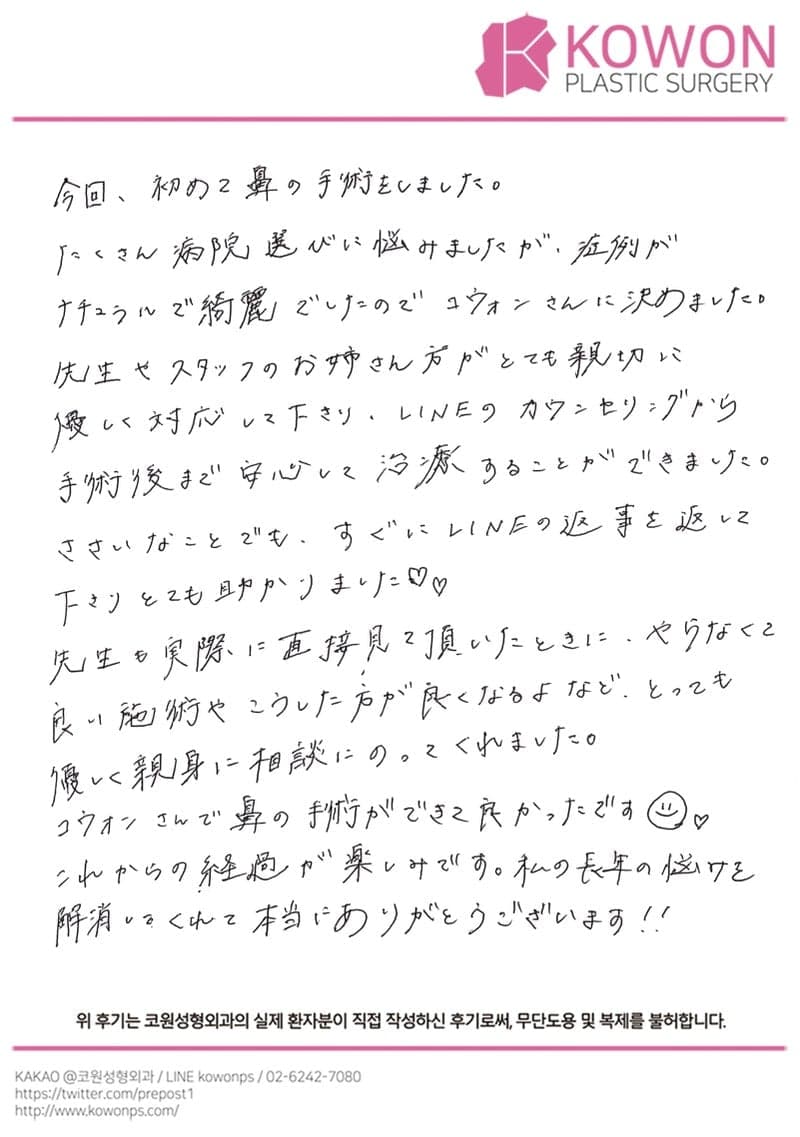 KOWON
PLASTIC SURGERY
今回、初めて鼻の手術をしました。
たくさん病院選びに悩みましたが、症例が
ナチュラルで綺麗でしたのでコウォンさんに決めました。
先生やスタッフのお姉さん方がとても親切に
優しく対応して下さり、LINEのカウンセリングから
手術後まで安心して治療することができました。
ささいなことでも、すぐにLINEの返事を返して
下さりとても助かりました♡♡
先生も実際に直接見て頂いたときに、やらなくて
良い施術やこうした方が良くなるよなど、とっても
優しく親身に相談にのってくれました。
コウォンさんで鼻の手術ができて良かったです☺♡
これからの経過が楽しみです。私の長年の悩みを
解消してくれて本当にありがとうございます!!
위 후기는 코원성형외과의 실제 환자분이 직접 작성하신 후기로써, 무단도용 및 복제를 불허합니다.
KAKAO @코원성형외과 / LINE kowonps / 02-6242-7080
https://twitter.com/prepost1
http://www.kowonps.com/